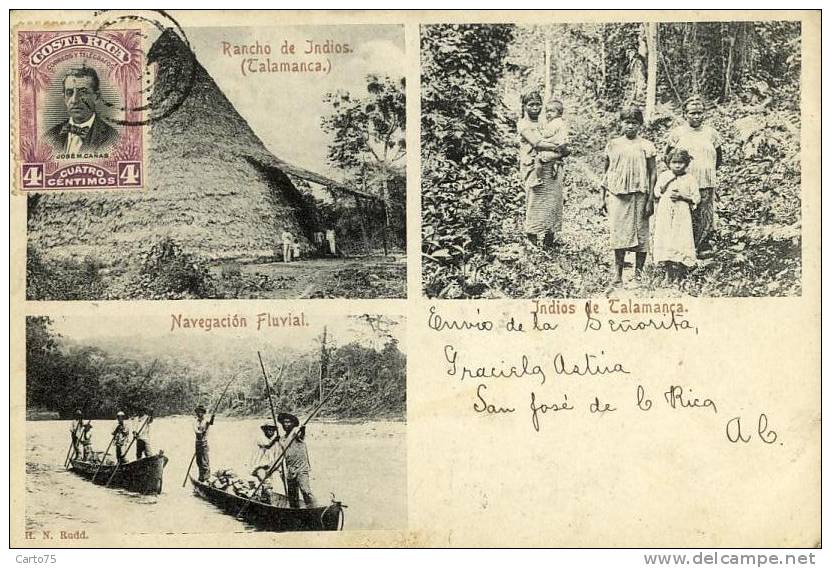 COSTA RICA
CORREOS Y TELEGRAFOS
JOSÉ M. CAÑAS
4 CUATRO 4
CÉNTIMOS
Rancho de Indios.
(Talamanca.)
Indios de Talamanca.
Navegación Fluvial.
Envío de la Señorita,
Graciela Astúa
San José de C Rica
A C.
H. N. Rudd.
Carto75
www.delcampe.net